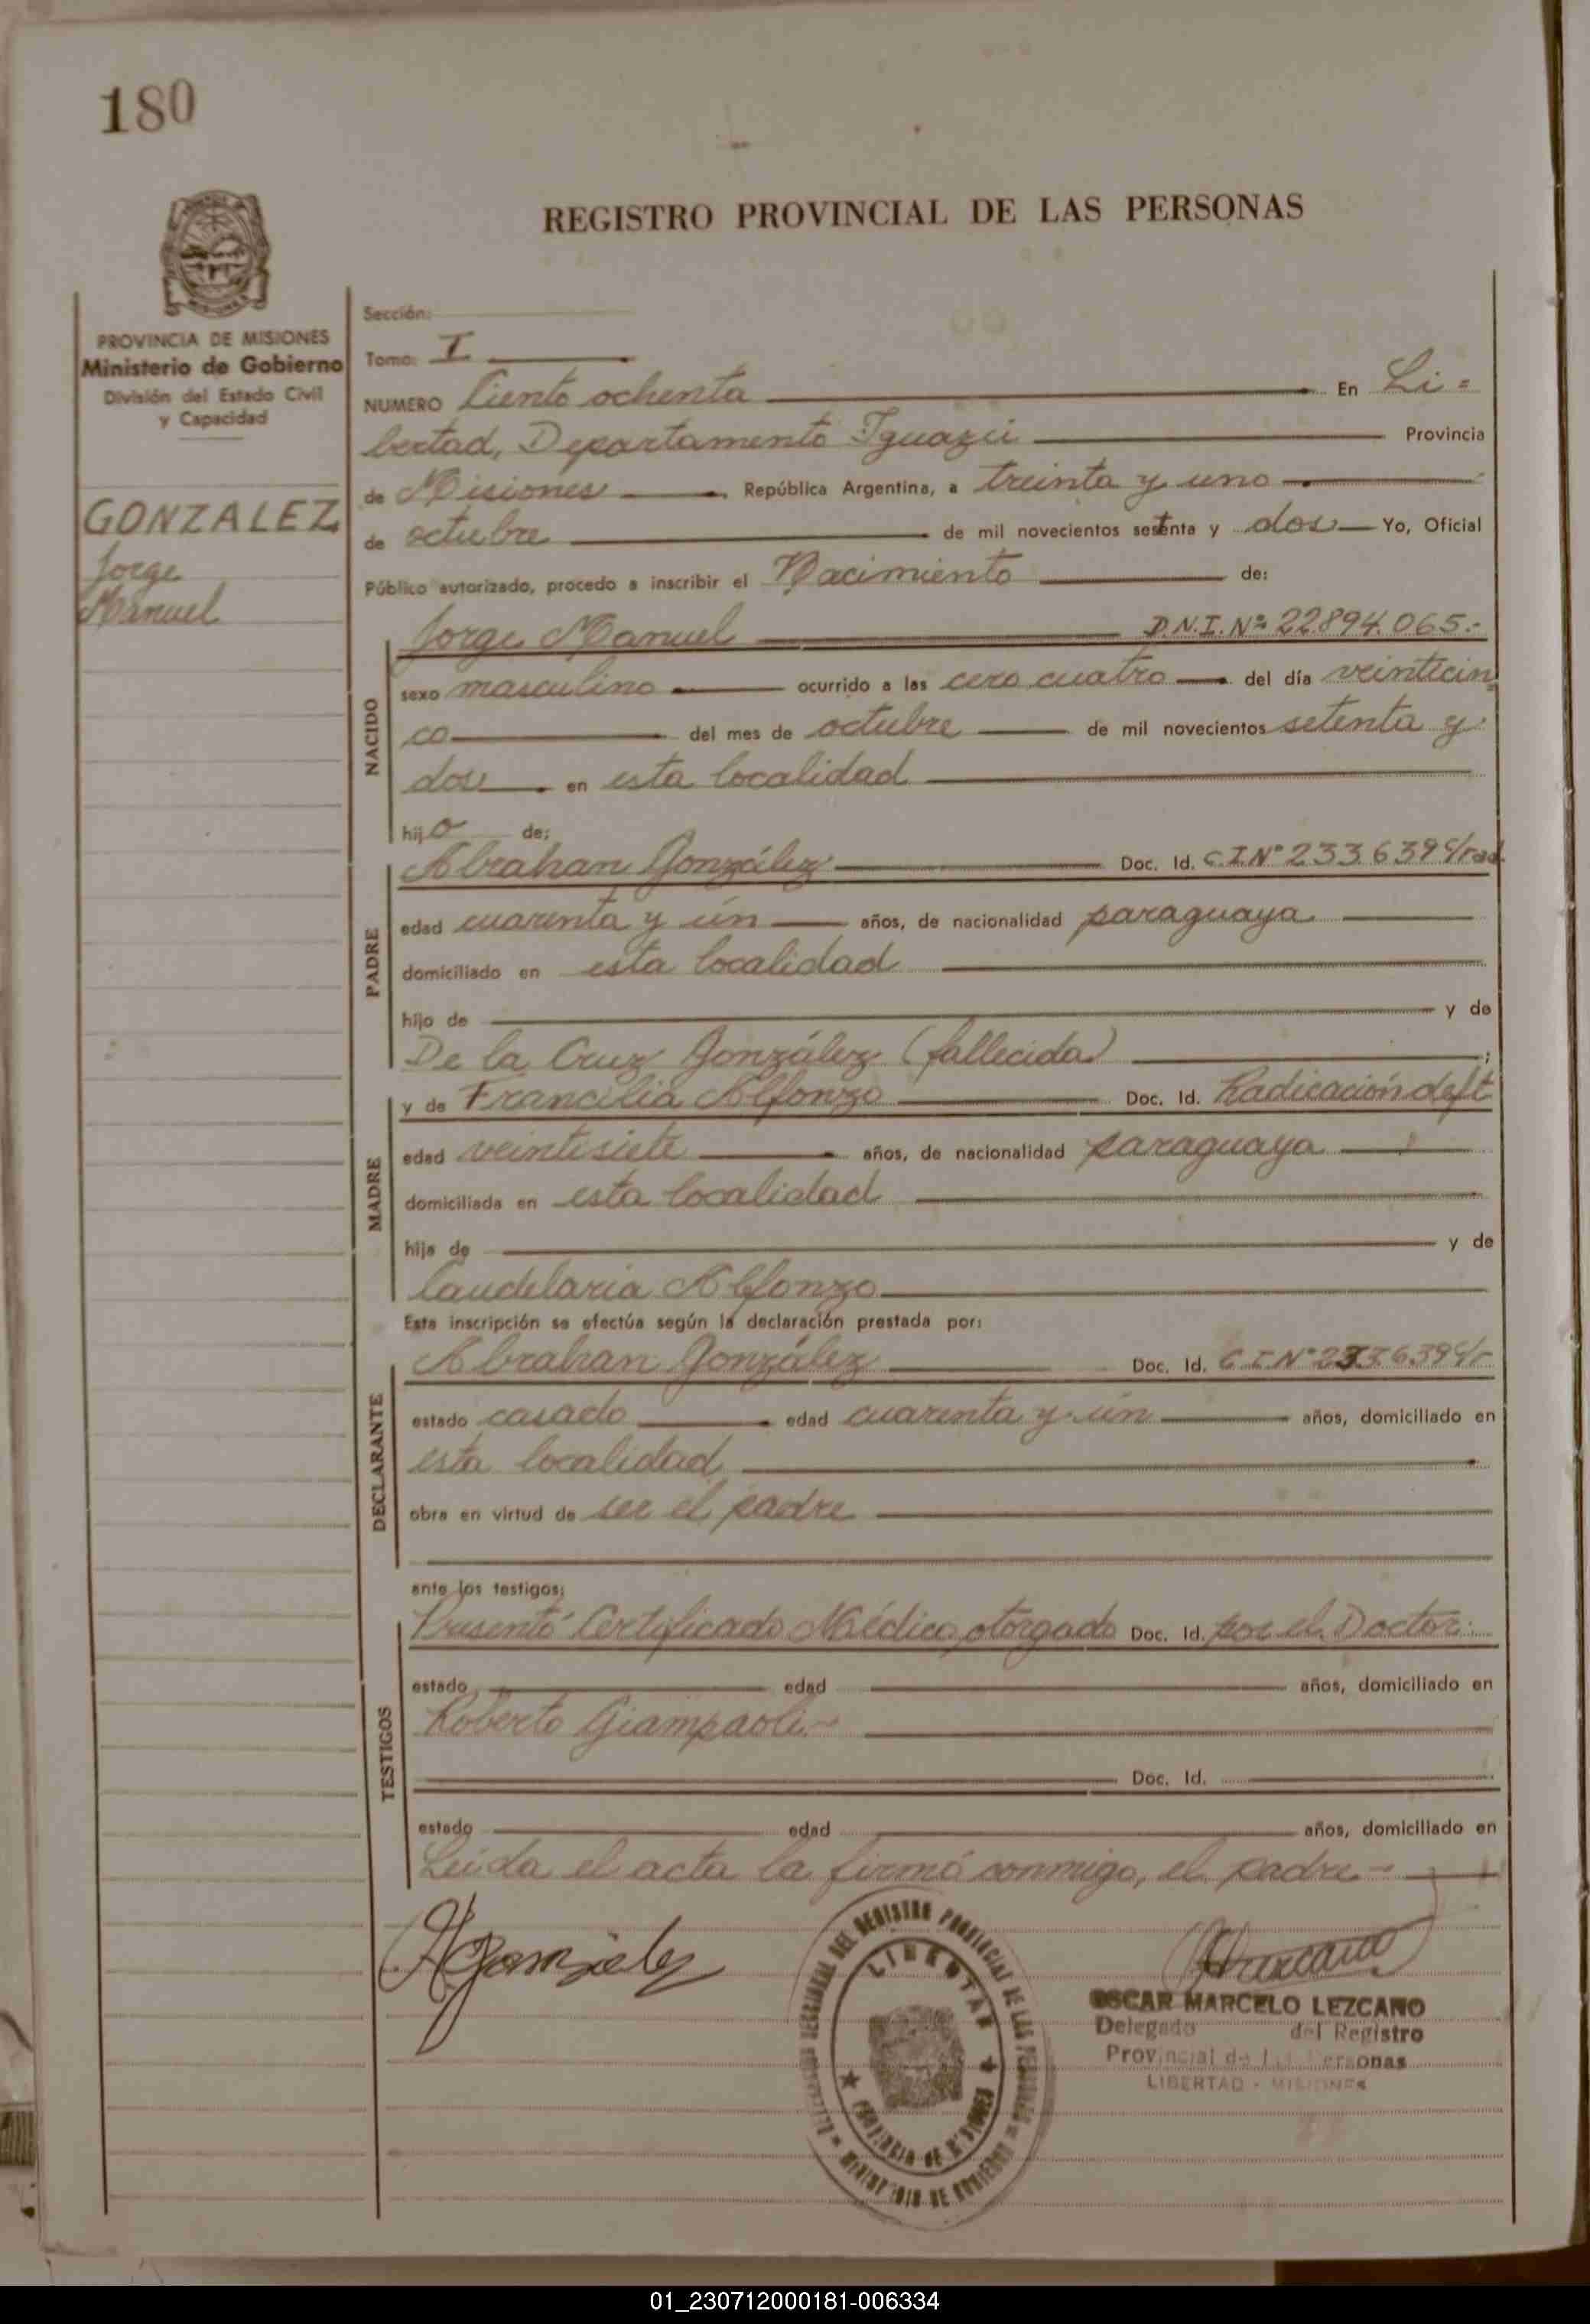 180
REGISTRO PROVINCIAL DE LAS PERSONAS
PROVINCIA DE MISIONES
Ministerio de Gobierno
División del Estado Civil
y Capacidad
GONZALEZ
Jorge
Manuel
Sección:
Tomo: I
NUMERO Ciento ochenta En Li=
bertad, Departamento Iguazú Provincia
de Misiones República Argentina, a treinta y uno
de octubre de mil novecientos setenta y dos Yo, Oficial
Público autorizado, procedo a inscribir el Nacimiento de:
NACIDO
Jorge Manuel D.N.I. Nº 22894.065.-
sexo masculino ocurrido a las cero cuatro del día veinticin
co del mes de octubre de mil novecientos setenta y
dos en esta localidad
hijo de:
PADRE
Abrahan González Doc. Id. C.I.Nº 233639 C/rad.
edad cuarenta y ún años, de nacionalidad paraguaya
domiciliado en esta localidad
hijo de y de
De la Cruz González (fallecida) ;
MADRE
y de Francilia Alfonzo Doc. Id. Radicación deft
edad veintisiete años, de nacionalidad paraguaya
domiciliada en esta localidad
hija de y de
Caudelaria Alfonzo
Esta inscripción se efectúa según la declaración prestada por:
DECLARANTE
Abrahan González Doc. Id. C.I.Nº 233639 C/r
estado casado edad cuarenta y ún años, domiciliado en
esta localidad
obra en virtud de ser el padre
ante los testigos:
TESTIGOS
Presentó Certificado Médico otorgado Doc. Id. por el Doctor
estado edad años, domiciliado en
Roberto Giampaoli.-
Doc. Id.
estado edad años, domiciliado en
Leída el acta la firmó conmigo, el padre.-
AGonzalez
DEL REGISTRO PROVINCIAL DE LAS PERSONAS
MINISTERIO DE GOBIERNO
LIBERTAD
PROVINCIA DE MISIONES
OSCAR MARCELO LEZCANO
Delegado del Registro
Provincial de las Personas
LIBERTAD - MISIONES
01_230712000181-006334